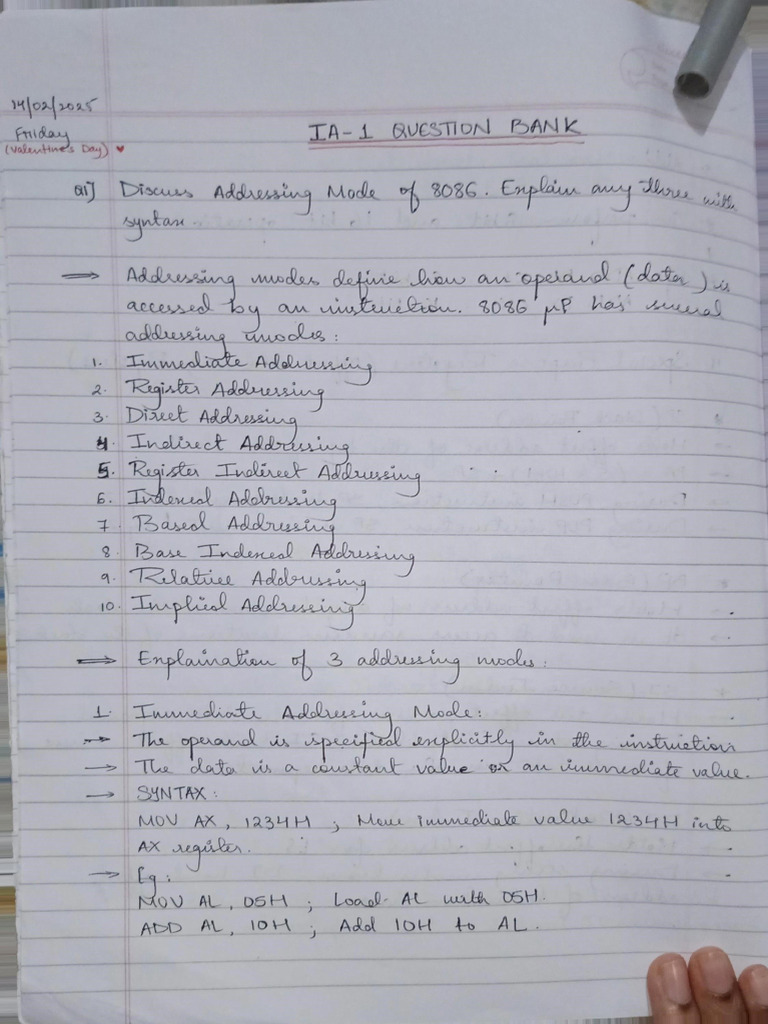 14/02/2025
Friday
(Valentine's Day) ♥
IA-1 QUESTION BANK
Q1] Discuss Addressing Mode of 8086. Explain any three with
syntax.
⟹ Addressing modes define how an operand (data) is
accessed by an instruction. 8086 μP has several
addressing modes:
1. Immediate Addressing
2. Register Addressing
3. Direct Addressing
4. Indirect Addressing
5. Register Indirect Addressing
6. Indexed Addressing
7. Based Addressing
8. Base Indexed Addressing
9. Relative Addressing
10. Implied Addressing
⟹ Explaination of 3 addressing modes:
1. Immediate Addressing Mode:
→ The operand is specified explicitly in the instruction
→ The data is a constant value or an immediate value.
→ SYNTAX:
MOV AX, 1234H ; Move immediate value 1234H into
AX register.
→ Eg:
MOV AL, 05H ; Load AL with 05H.
ADD AL, 10H ; Add 10H to AL.